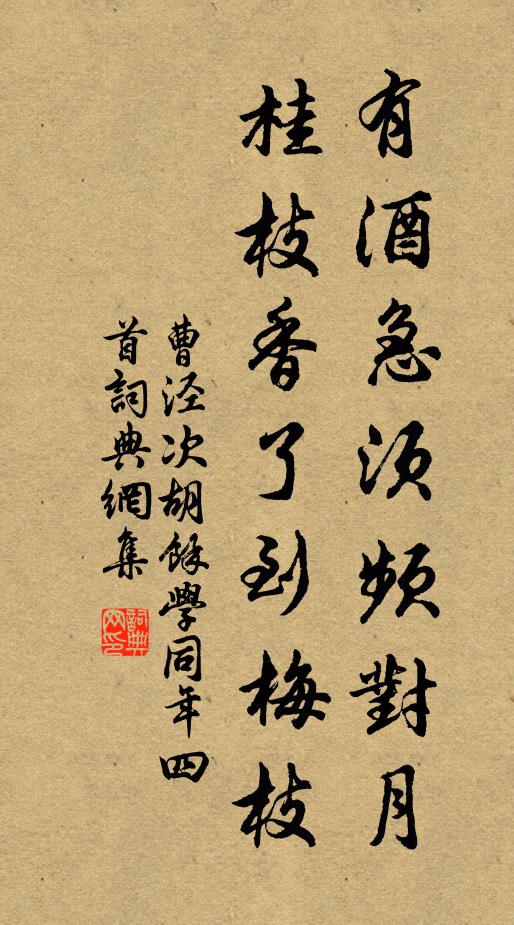 有酒急須頻對月
桂枝香了到梅枝
曹涇次胡餘學同年四
首詞典網集
詞典
网印